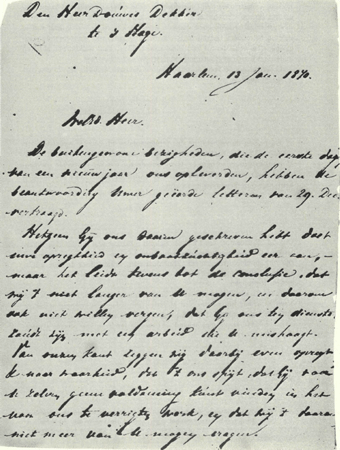 Den Heer Douwes Dekker
te 's Hage.
Haarlem, 13 Jan. 1870.
WelEd. Heer.
De buitengewone bezigheden, die de eerste dagen
van een nieuwjaar ons opleverden, hebben de
beantwoording Uwer geëerde letteren van 29 Dec.
vertraagd.
Hetgeen Gij ons daarin geschreven hebt doet
uwe opregtheid en
maar het leidt tevens tot de conclusie, dat
wij 't niet langer van U mogen, en daarom
ook niet willen vergen, dat Gij ons ten dienste
zijt met een arbeid die U mishaagt.
Van onzen kant zeggen wij daarbij even opregt
&amp; naar waarheid, dat 't ons spijt, dat Gij
geene voldoening kunt vinden in het
van ons te verrigten werk, en dat wij 't daarom
niet meer van U mogen vragen.